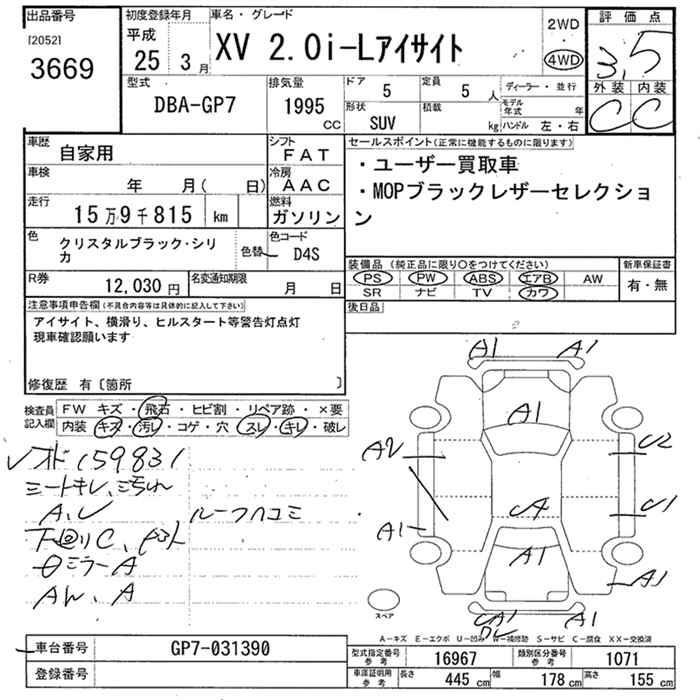 出品番号
[2052]
3669
初度登録年月
平成
25 3月
車名・グレード
XV 2.0i-Lアイサイト
2WD
4WD
評価点
3,5
外装 内装
C C
型式
DBA-GP7
排気量
1995 CC
ドア
5
定員
5 人
形状
SUV
積載
kg
ディーラー・並行
モデル年式 年
ハンドル 左・右
車歴
自家用
シフト
FAT
車検
年 月( 日)
冷房
AAC
走行
15万9千815 km
燃料
ガソリン
色
クリスタルブラック・シリカ
色替
色コード
D4S
R券
12,030円
名変通知期限
月 日
セールスポイント(正常に機能するものに限ります)
・ユーザー買取車
・MOPブラックレザーセレクショ
ン
装備品(純正品に限り○をつけてください)
PS PW ABS エアB AW
SR ナビ TV カワ
新車保証書
有・無
後日品
注意事項申告欄(不具合内容等は具体的に記入して下さい)
アイサイト、横滑り、ヒルスタート等警告灯点灯
現車確認願います
修復歴 有〔箇所 〕
検査員記入欄
FW キズ・飛石・ヒビ割・リペア跡・×要
内装 キズ・汚レ・コゲ・穴・スレ・キレ・破レ
159831
A、U ルーフハコミ
下回りC、
ミラーA
A1 A1
A1
A2
U2
A
U1
A1
A1
A1
A1
スペア
A−キズ E−エクボ U−凹み W−補修跡 S−サビ C−腐食 XX−交換済
車台番号
GP7-031390
登録番号
型式指定番号 参考
16967
類別区分番号 参考
1071
車庫証明用 参考
長さ 445 cm
幅 178 cm
高さ 155 cm